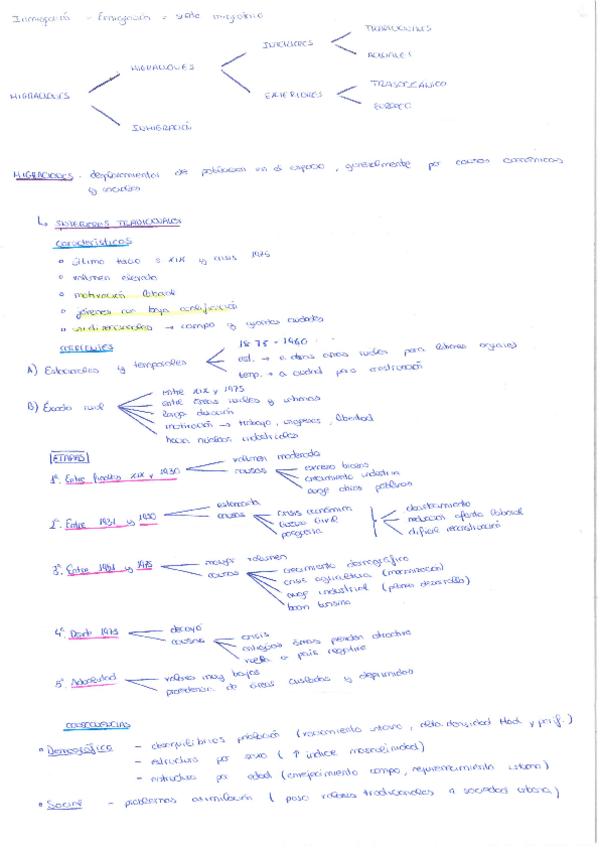 Inmigración - Emigración = saldo migratorio
TRADICIONALES
INTERIORES
ACTUALES
MIGRACIONES
MIGRACIONES
EXTERIORES
TRASOCEÁNICO
EUROPEO
INMIGRACIÓN
MIGRACIONES. desplazamientos de población en el espacio, generalmente por causas económicas
y sociales
INTERIORES TRADICIONALES
Características
último tercio s XIX y crisis 1975
volumen elevado
motivación laboral
jóvenes con baja cualificación
→ campo y ciudades
CORRIENTES
1875 - 1960
A) Estacionales y temporales
est. → a otras áreas rurales para labores
temp. → a ciudad para construcción
entre XIX y 1975
B) Éxodo rural
entre áreas rurales y urbanas
larga duración
motivación → trabajo, ingresos, libertad
hacia núcleos industriales
ETAPAS
volumen moderado
1ª. Entre finales XIX y 1930
causas
exceso brazos
crecimiento industria
auge obras públicas
estancada
2ª. Entre 1931 y 1950
causas
crisis económica
Guerra Civil
posguerra
reducción oferta laboral
difícil reconstrucción
mayor volumen
3ª. Entre 1951 y 1975
causas
crecimiento demográfico
crisis agricultura (mecanización)
auge industrial (planes desarrollo)
boom turismo
4ª. Desde 1975
decayó
causas
crisis
antiguas áreas pierden atractivo
vuelta a país
5ª. Actualidad
valores muy bajos
procedencia de áreas aisladas y deprimidas
CONSECUENCIAS
Demográfico - desequilibrios población (vaciamiento interno, alta densidad Mad y perif.)
- estructura por sexo (↑ índice masculinidad)
- estructura por edad (envejecimiento campo, rejuvenecimiento urbano)
Social - problemas asimilación (paso valores tradicionales a sociedad urbana)